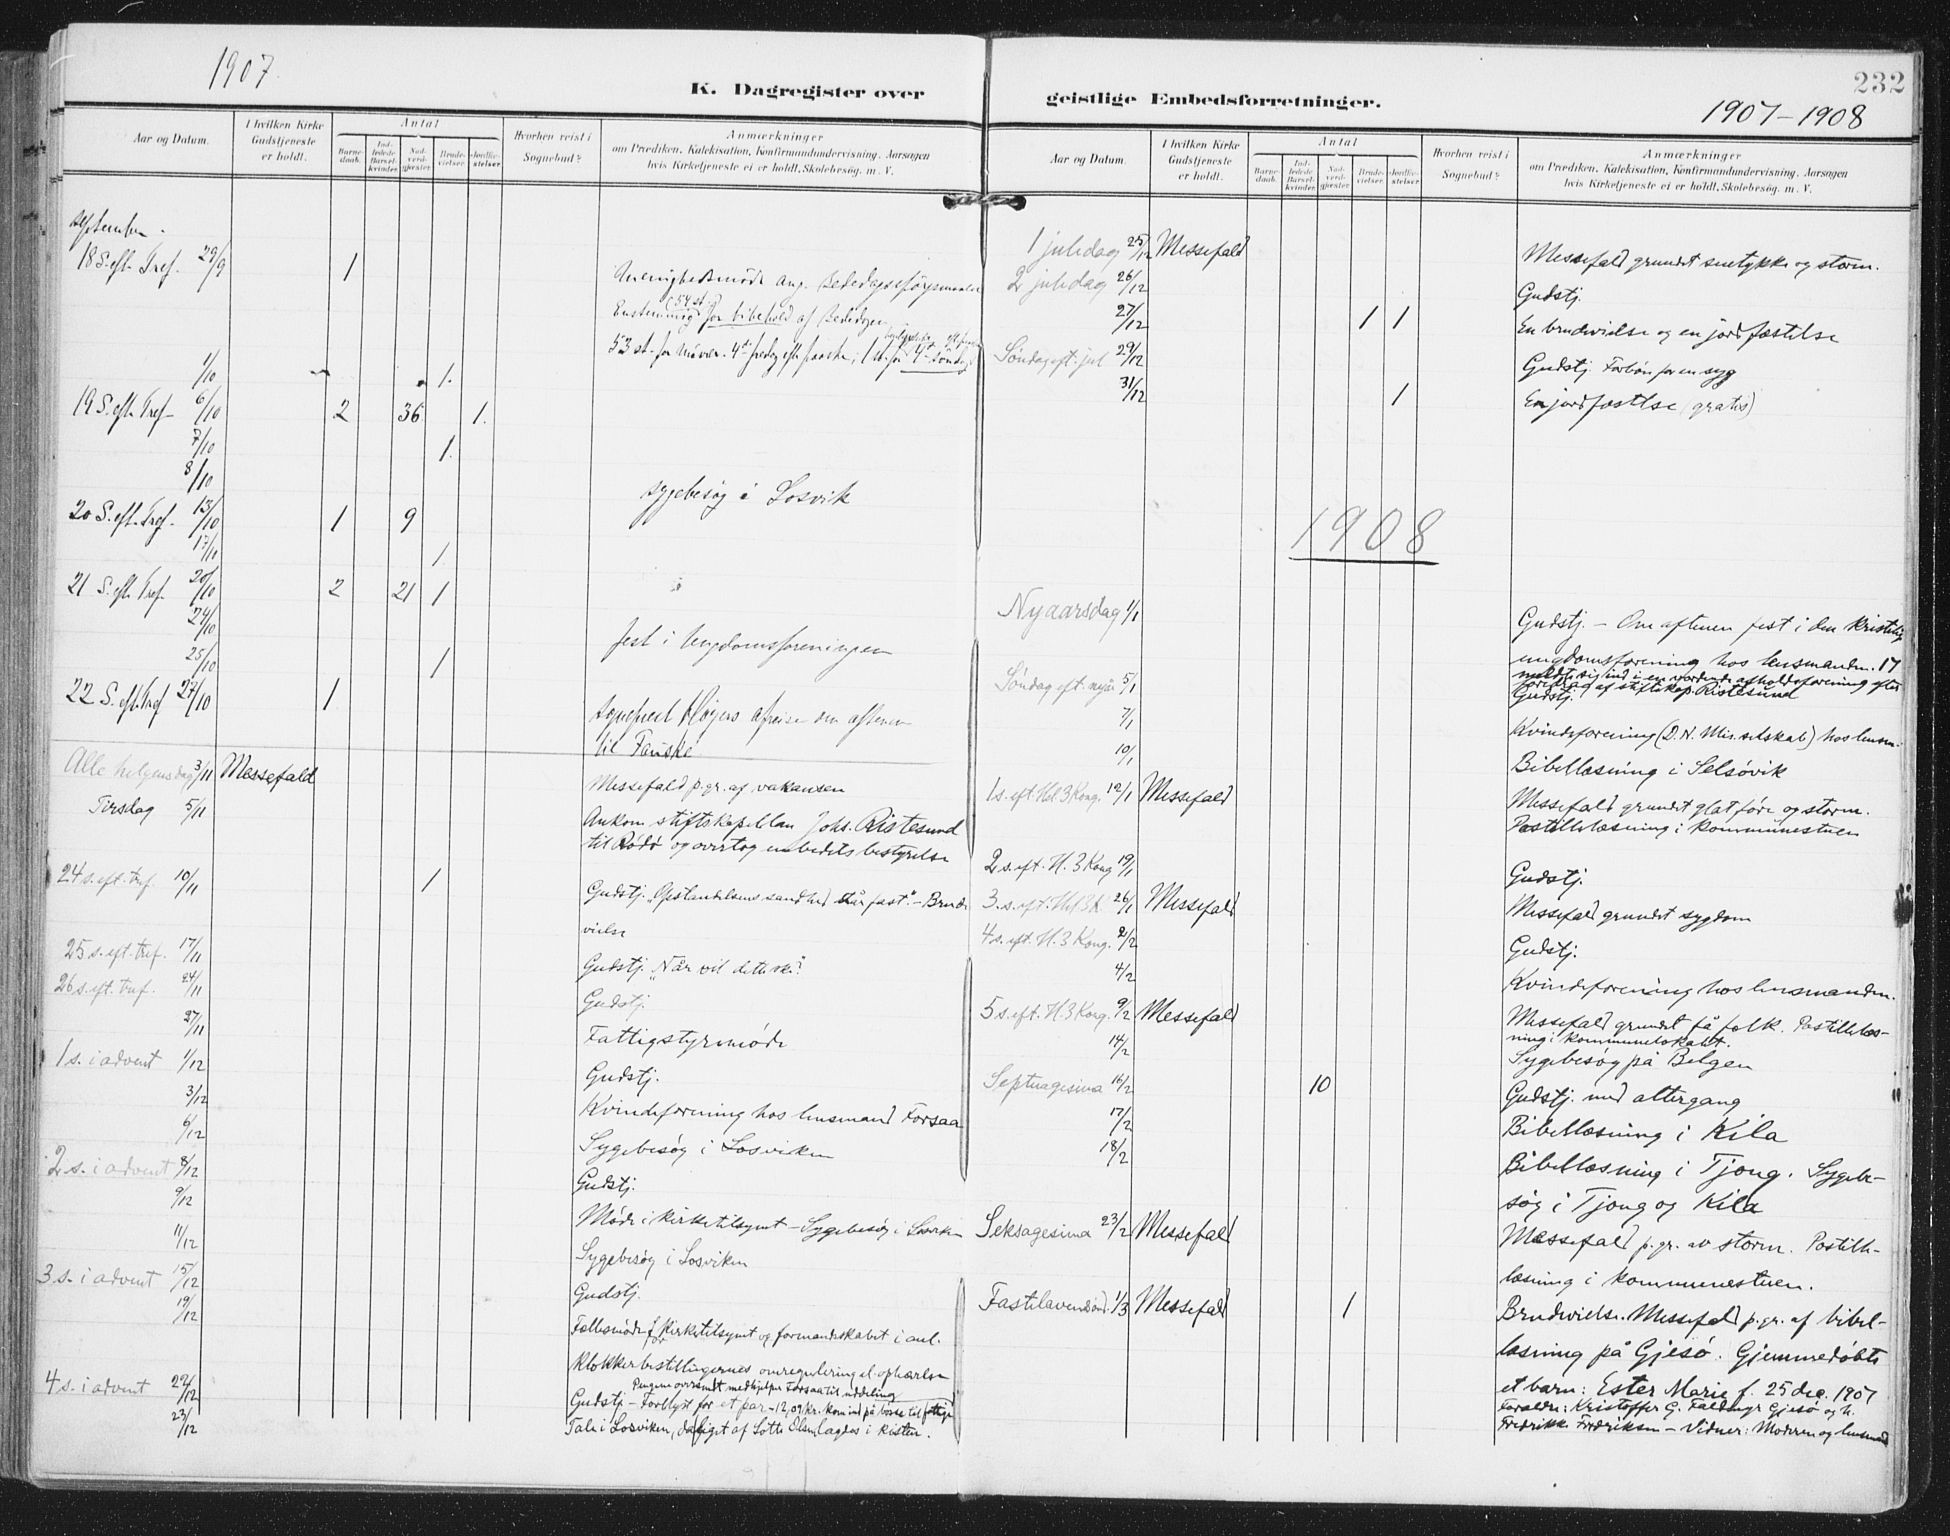 1907.
K. Dagregister over
Aar og Datum.
I hvilken Kirke Gudstjeneste er holdt.
Antal
Barnedaab.
Indledede Barselkvinder.
Nadverdgjester.
Brudevielser.
Jordfæstelser
Hvorhen reist i Sognebud?
Anmærkninger
om Prædiken, Katekisation, Konfirmandundervisning, Aarsagen
hvis Kirketjeneste ei er holdt, Skolebesøg, m. V.
September.
18 S. eft. Tref. 29/9 1
Menighedsmøde ang. Bededagsspørgsmaalet
Enstemmig (54 st.) for bibehold af Bededagen
53 st. for 4de fredag efter paaske; 1 st. for 4de søndag
1/10 1.
19 S. eft. Tref. 6/10 2 36 1.
7/10 1.
8/10 sygebesøg i Sosvik
20 S. eft. Tref. 13/10 1 9
17/10 1
21 S. eft. Tref. 20/10 2 21 1
24/10 fest i Ungdomsforeningen
25/10 1
22 S. eft. Tref 27/10 1
Sognepræst afreise om aftenen
til Fauske
Alle helgensdag 3/11 Messefald Messefald p.gr. af vakansen
Tirsdag 5/11 Ankom stiftskapellan Johs. Ristesund
til Rødø og overtog embedets bestyrelse
24 s. eft. tref. 10/11 1 Gudstj. "Opstandelsens sandhed står fast". - Brude
vielse
25 s. eft. tref. 17/11 Gudstj. "Når vil dette ske?"
26 s. eft. tref. 24/11 Gudstj.
27/11 Fattigstyremøde
1 s. i advent 1/12 Gudstj.
3/12 Kvindeforening hos lensmand Forsaa
6/12 Sygebesøg i Sosviken
2 s. i advent 8/12 Gudstj.
9/12 Møde i kirketilsynet - Sygebesøg i Sosviken
11/12 Sygebesøg i Sosviken
3 s. i advent 15/12 Gudstj.
19/12 Fællesmøde f. kirketilsynet og formandskabet i anl.
klokkerbestillingernes omregulering el. ophævelse
Pengene oversendt medhjelper Forsaa til uddeling
4 s. i advent 22/12 Gudstj. - Forlyst for et par - 12,09 kr. kom ind på bøsse til fattige
23/12 Tale i Sosviken, da liget af Lotte Olsen lagdes i kisten.
232
geistlige Embedsforretninger.
1907-1908
Aar og Datum.
I hvilken Kirke Gudstjeneste er holdt.
Antal
Barnedaab.
Indledede Barselkvinder.
Nadverdgjester
Brudevielser.
Jordfæstelser
Hvorhen reist i Sognebud?
Anmærkninger
om Prædiken, Katekisation, Konfirmandundervisning, Aarsagen
hvis Kirketjeneste ei er holdt, Skolebesøg, m. V.
1 juledag 25/12 Messefald Messefald grundet snetykke og storm.
2 juledag 26/12 Gudstj.
27/12 1 1 En brudevielse og en jordfæstelse
Søndag eft. jul 29/12 Gudstj. Forbøn for en syg
31/12 1 En jordfæstelse (gratis)
1908
Nyaarsdag 1/1 Gudstj. - Om aftenen fest i den kristelig
ungdomsforening hos lensmanden. 17
meldte sig ind i en vordende afholdsforening efter
foredrag af stiftskap. Ristesund
Søndag eft. nyår 5/1 Gudstj.
7/1 Kvindeforening (D. N. Mis. selskab) hos lensm.
10/1 Bibellæsning i Selsøvik
1 s. eft. Hel 3 Kong. 12/1 Messefald Messefald grundet glat føre og storm.
Postillelæsning i kommunestuen
2 s. eft. H. 3 Kong 19/1 Gudstj.
3. s. eft. Hel 3 K 26/1 Messefald Messefald grundet sygdom
4 s. eft. H. 3 Kong. 2/2 Gudstj.
4/2 Kvindeforening hos lensmanden.
5 s. eft. H. 3 Kong. 9/2 Messefald Messefald grundet få folk. Postillelæs-
ning i kommunelokalet.
14/2 Sygebesøg på Bolgen
Septuagesima 16/2 10 Gudstj. med altergang
17/2 Bibellæsning i Kila
18/2 Bibellæsning i Tjong. Sygebe-
søg i Tjong og Kila
Seksagesima 23/2 Messefald Messefald p. gr. av storm. Postille-
læsning i kommunestuen.
Fastelavensønd. 1/3 Messefald 1 Brudevielse. Messefald p. gr. af bibel-
læsning på Gjesø. Gjemmedøbte
et barn: Ester Marie f. 25 dec. 1907
Forældre: Kristoffer G. Gjesø og h.
Fredrikke Fredriksen - Vidner: Moderen og lensmand